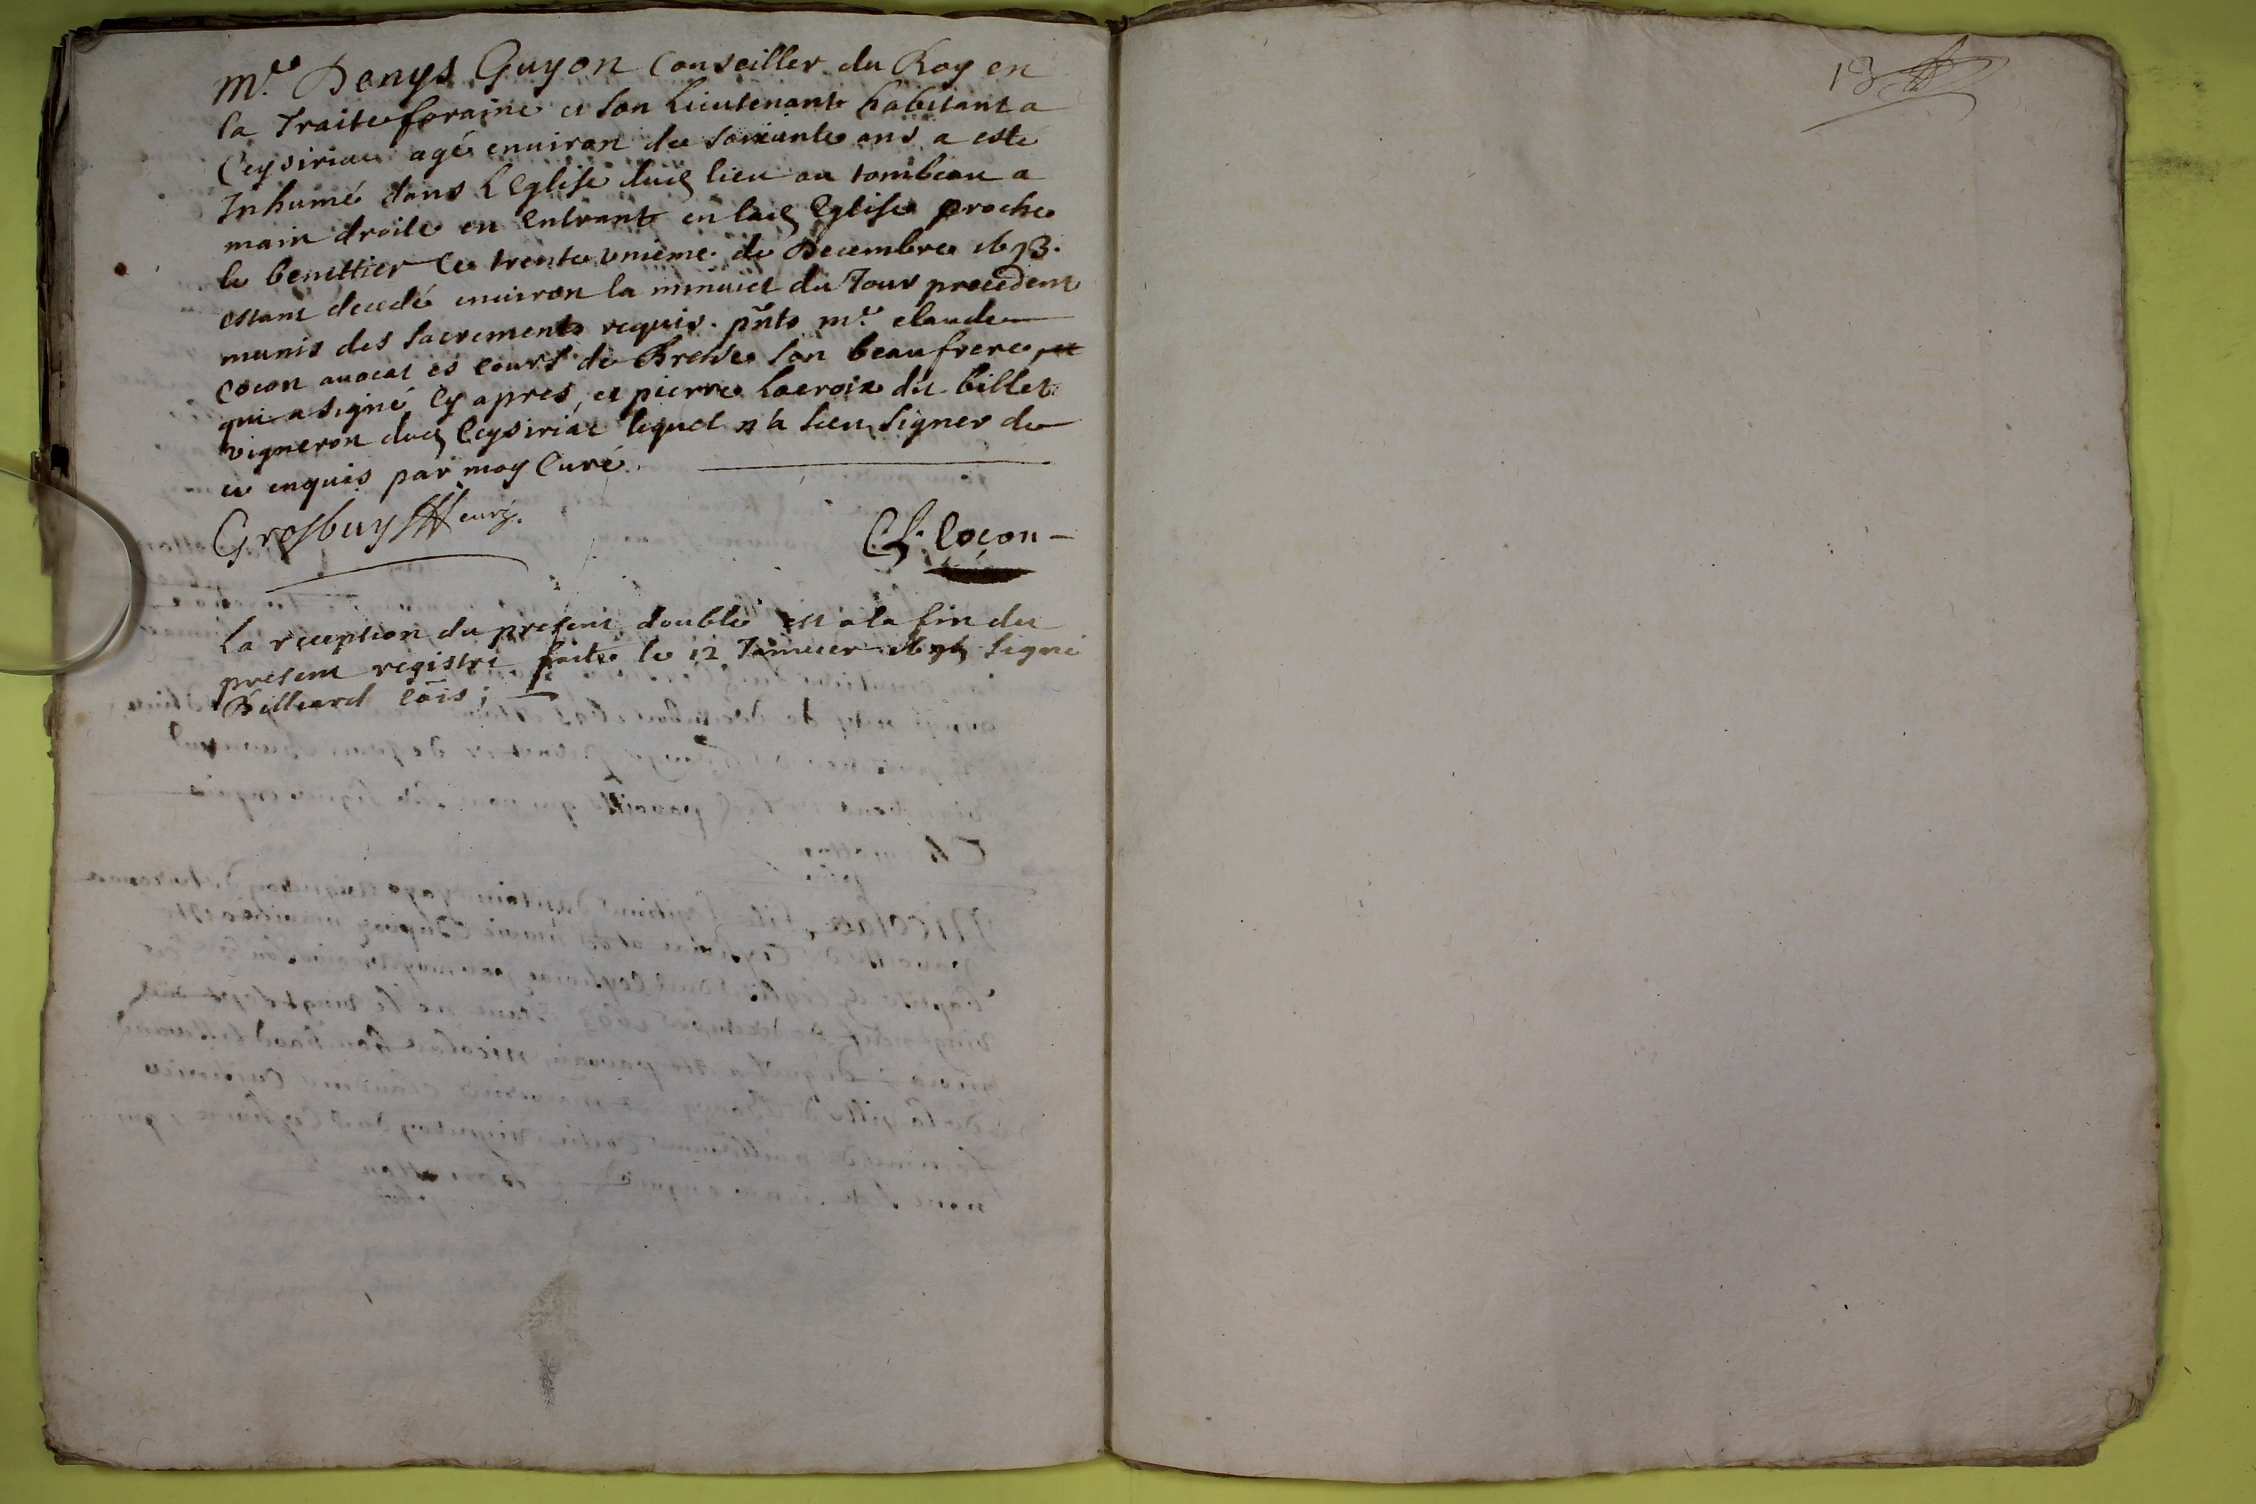 Mre. Denys Guyon Conseiller du Roy en
la Traite foraine et son Lieutenant habitant a
Ceysiriac agé enuiron de soixante ans a esté
Inhumé dans L'Eglise dud. lieu au tombeau a
main droite en entrant en lad. Eglise proche
le benittier ce trente unieme de Decembre 1693.
estant decedé enuiron la minuict du Jour precedent
munis des sacrements requis. pnts Mre. claude
Cocon auocat es cours de Bresse son beaufrere
qui a signé cy apres, et pierre Lacroix dit billet
vigneron dud. Ceysiriac lequel n'a sceu signer de
ce enquis par moy Curé.
Grosbuys curé.
Cl. Cocon
La reception du present double est a la fin du
present registre faite le 12 Januier signé
Billiard cõis;
13